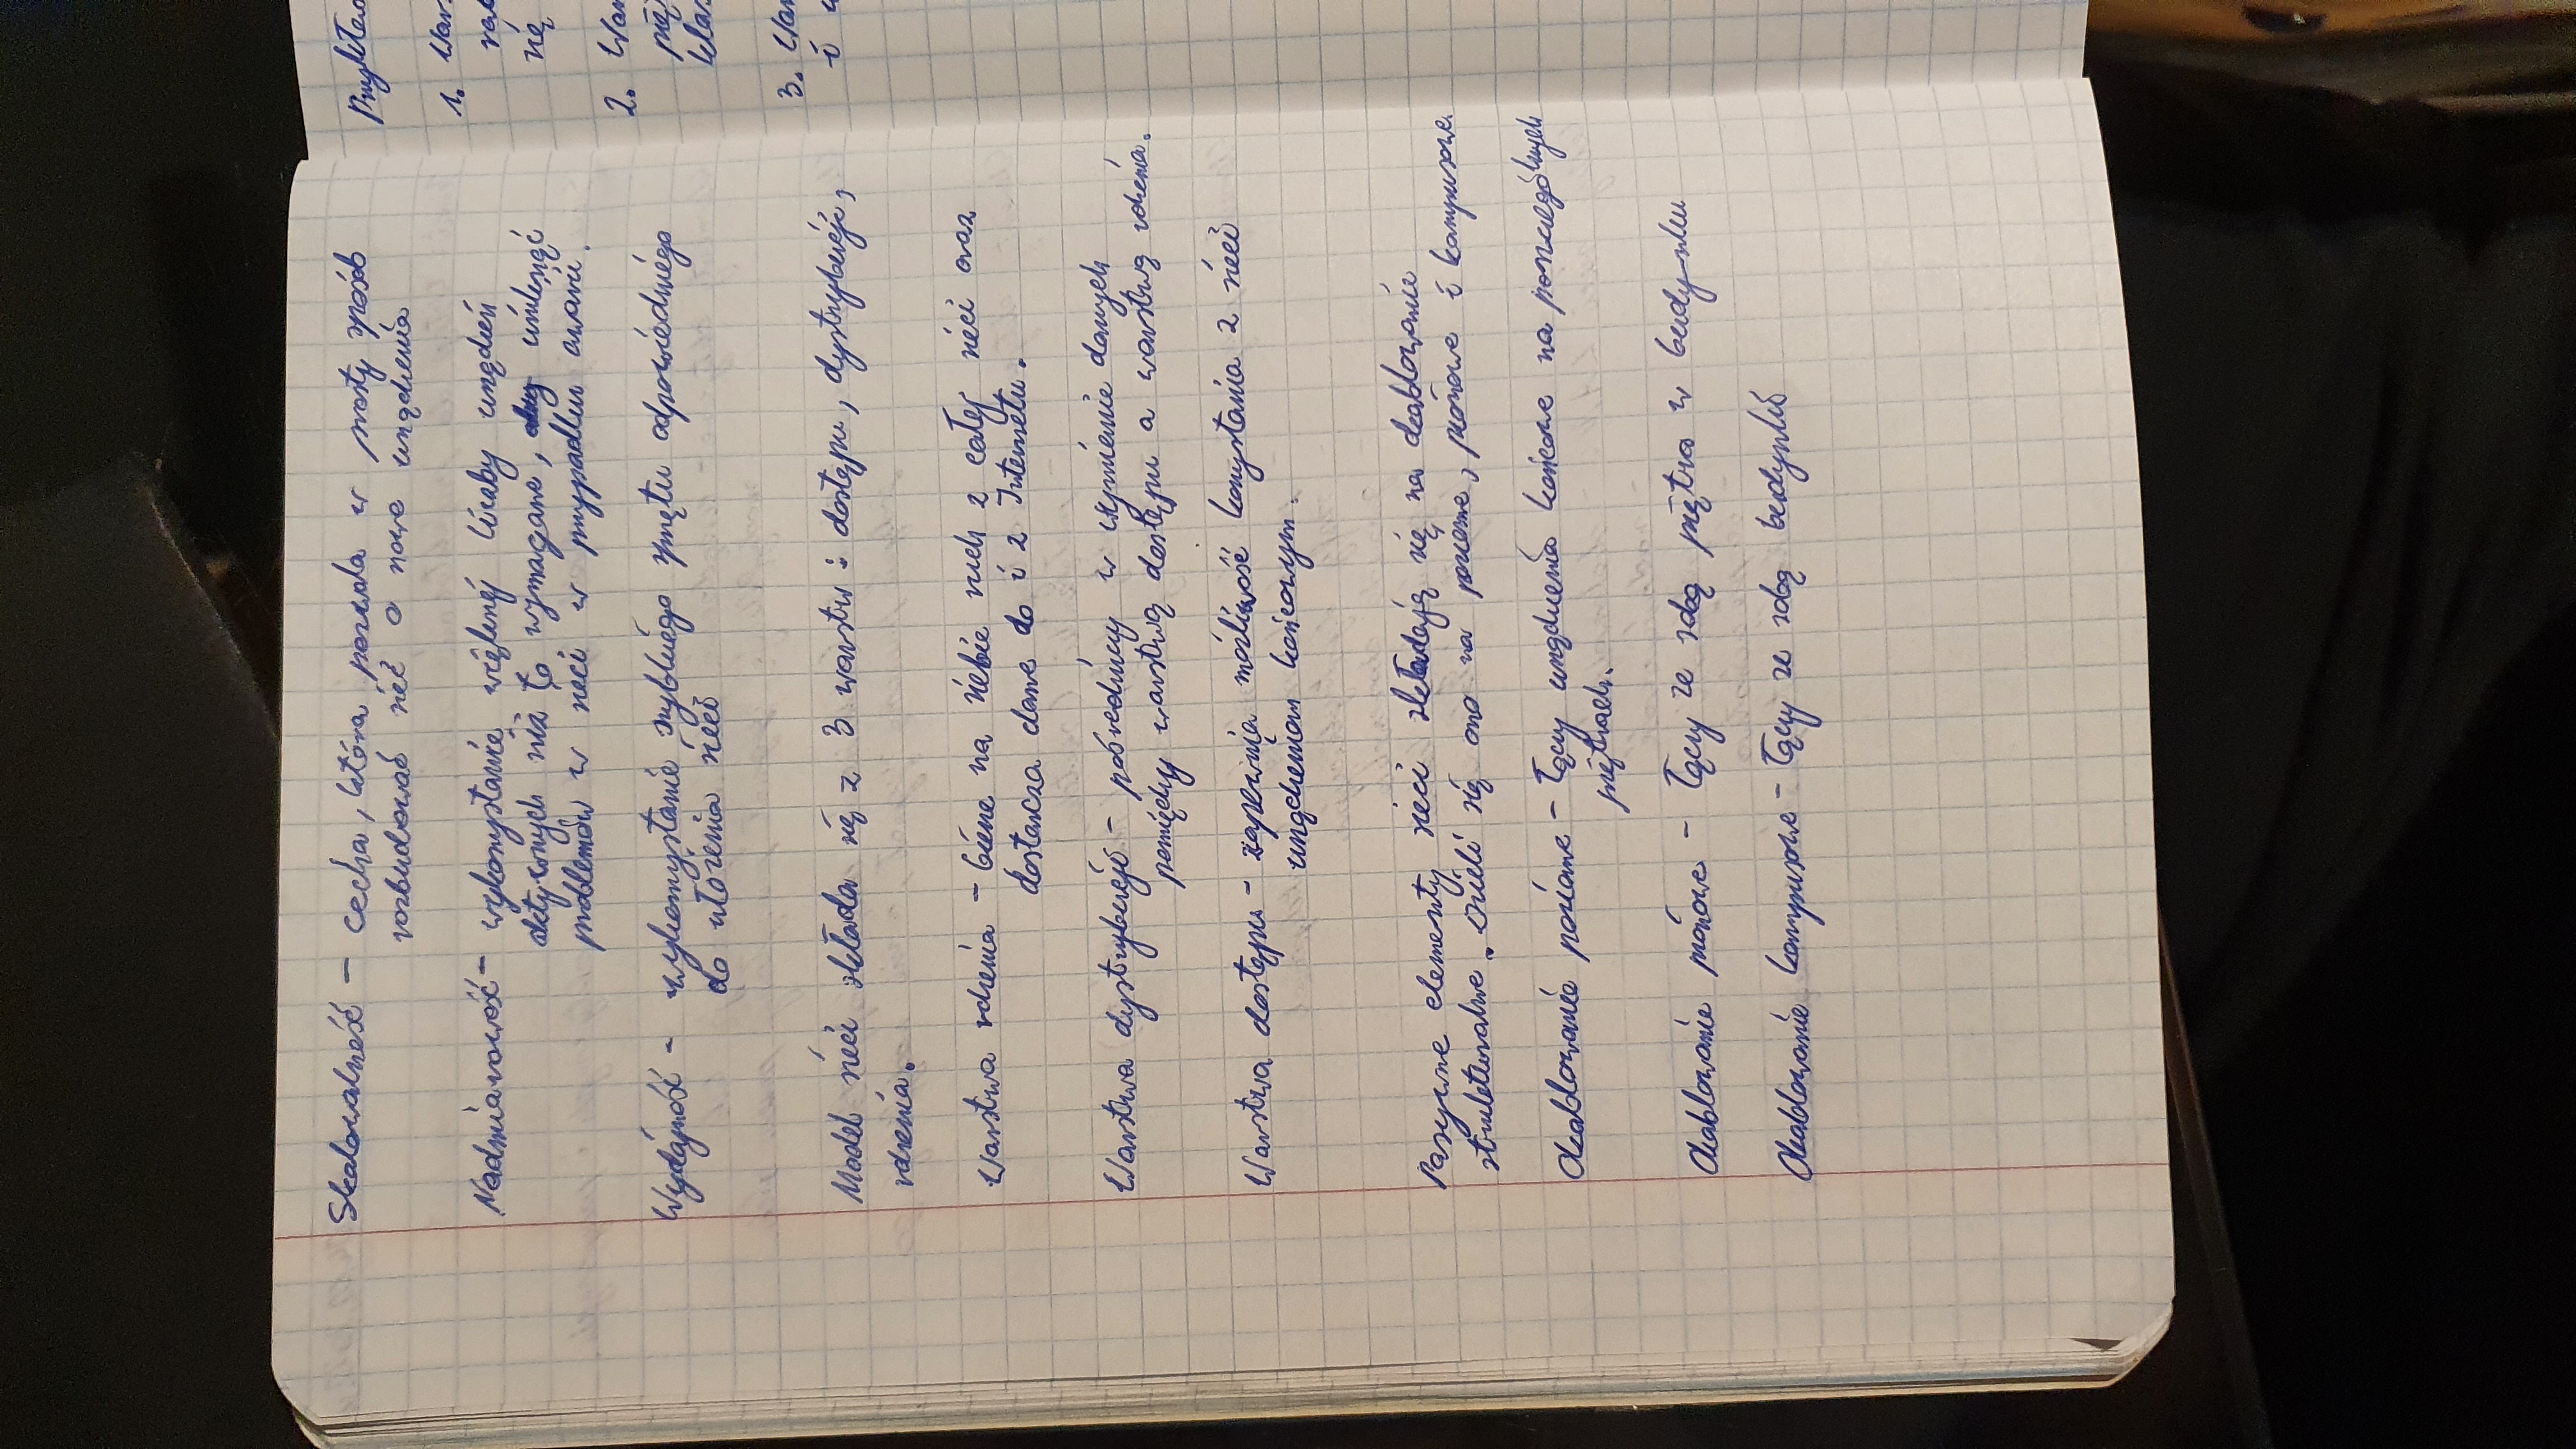 Skalowalność – cecha, która pozwala w prosty sposób
rozbudować sieć o nowe urządzenia
Nadmiarowość – wykorzystanie większej liczby urządzeń
aktywnych niż to wymagane, aby uniknąć
problemów w sieci w przypadku awarii.
Wydajność – wykorzystanie szybkiego sprzętu odpowiedniego
do ułożenia sieci
Model sieci składa się z 3 warstw: dostępu, dystrybucji,
rdzenia.
Warstwa rdzenia – bierze na siebie ruch z całej sieci oraz
dostarcza dane do i z Internetu.
Warstwa dystrybucji – pośredniczy w wymianie danych
pomiędzy warstwą dostępu a warstwą rdzenia.
Warstwa dostępu – zapewnia możliwość korzystania z sieci
urządzeniom końcowym.
Pasywne elementy sieci składają się na okablowanie
strukturalne. Dzieli się ono na poziome, pionowe i kampusowe.
Okablowanie poziome – łączy urządzenia końcowe na poszczególnych
piętrach.
Okablowanie pionowe – łączy ze sobą piętra w budynku
Okablowanie kampusowe – łączy ze sobą budynki
1.
się
2.
3.
i